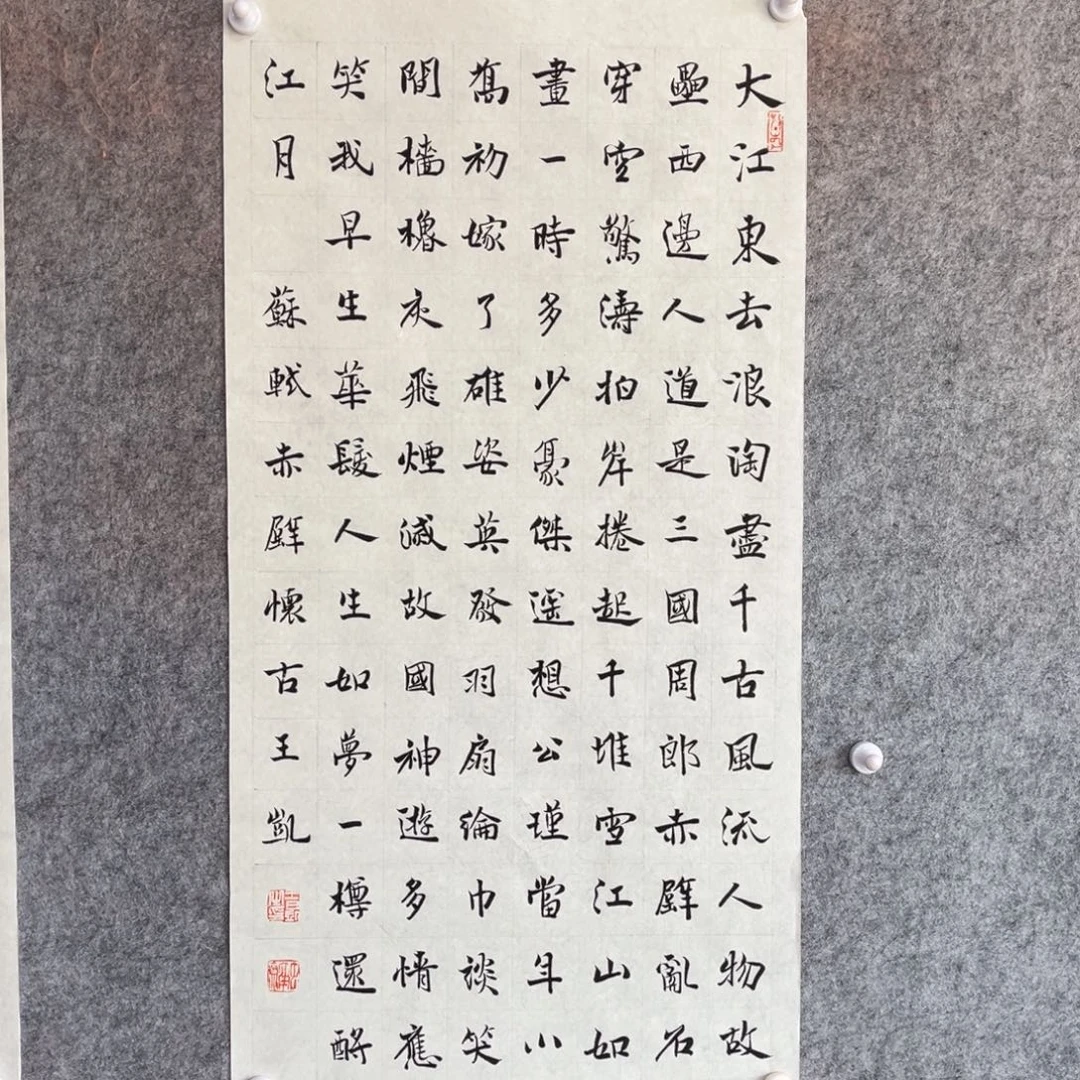 大江東去浪淘盡千古風流人物故
壘西邊人道是三國周郎赤壁亂石
穿空驚濤拍岸捲起千堆雪江山如
畫一時多少豪傑遙想公瑾當年小
喬初嫁了雄姿英發羽扇綸巾談笑
間檣櫓灰飛煙滅故國神遊多情應
笑我早生華髮人生如夢一樽還酹
江月 蘇軾赤壁懷古王凱